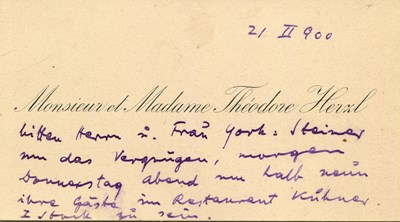 21 II 900
Monsieur et Madame Théodore Herzl
bitten Herrn u. Frau York-Steiner
um das Vergnügen, morgen
Donnerstag abend um halb neun
ihre Gäste im Restaurant Kühner
I Stock zu sein.